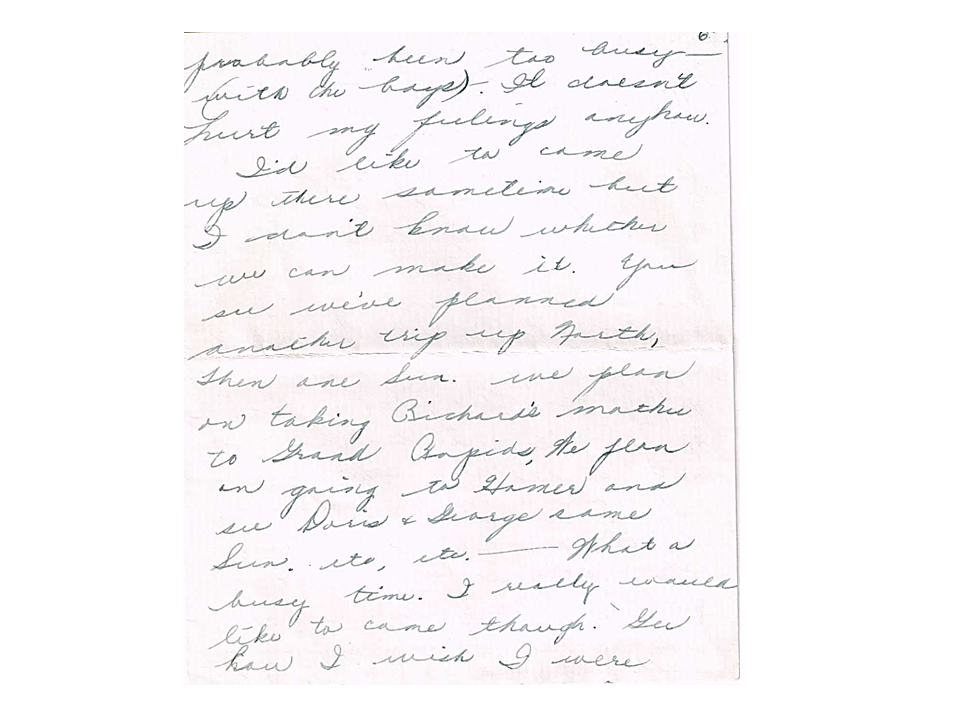 6.
probably been too busy—
(with the boys). It doesn't
hurt my feelings anyhow.
I'd like to come
up there sometime but
I don't know whether
we can make it. You
see we've planned
another trip up North,
then one Sun. we plan
on taking Richard's mother
to Grand Rapids, We plan
on going to Homer and
see Doris & George some
Sun. etc, etc. — What a
busy time. I really would
like to come though. Gee
how I wish I were